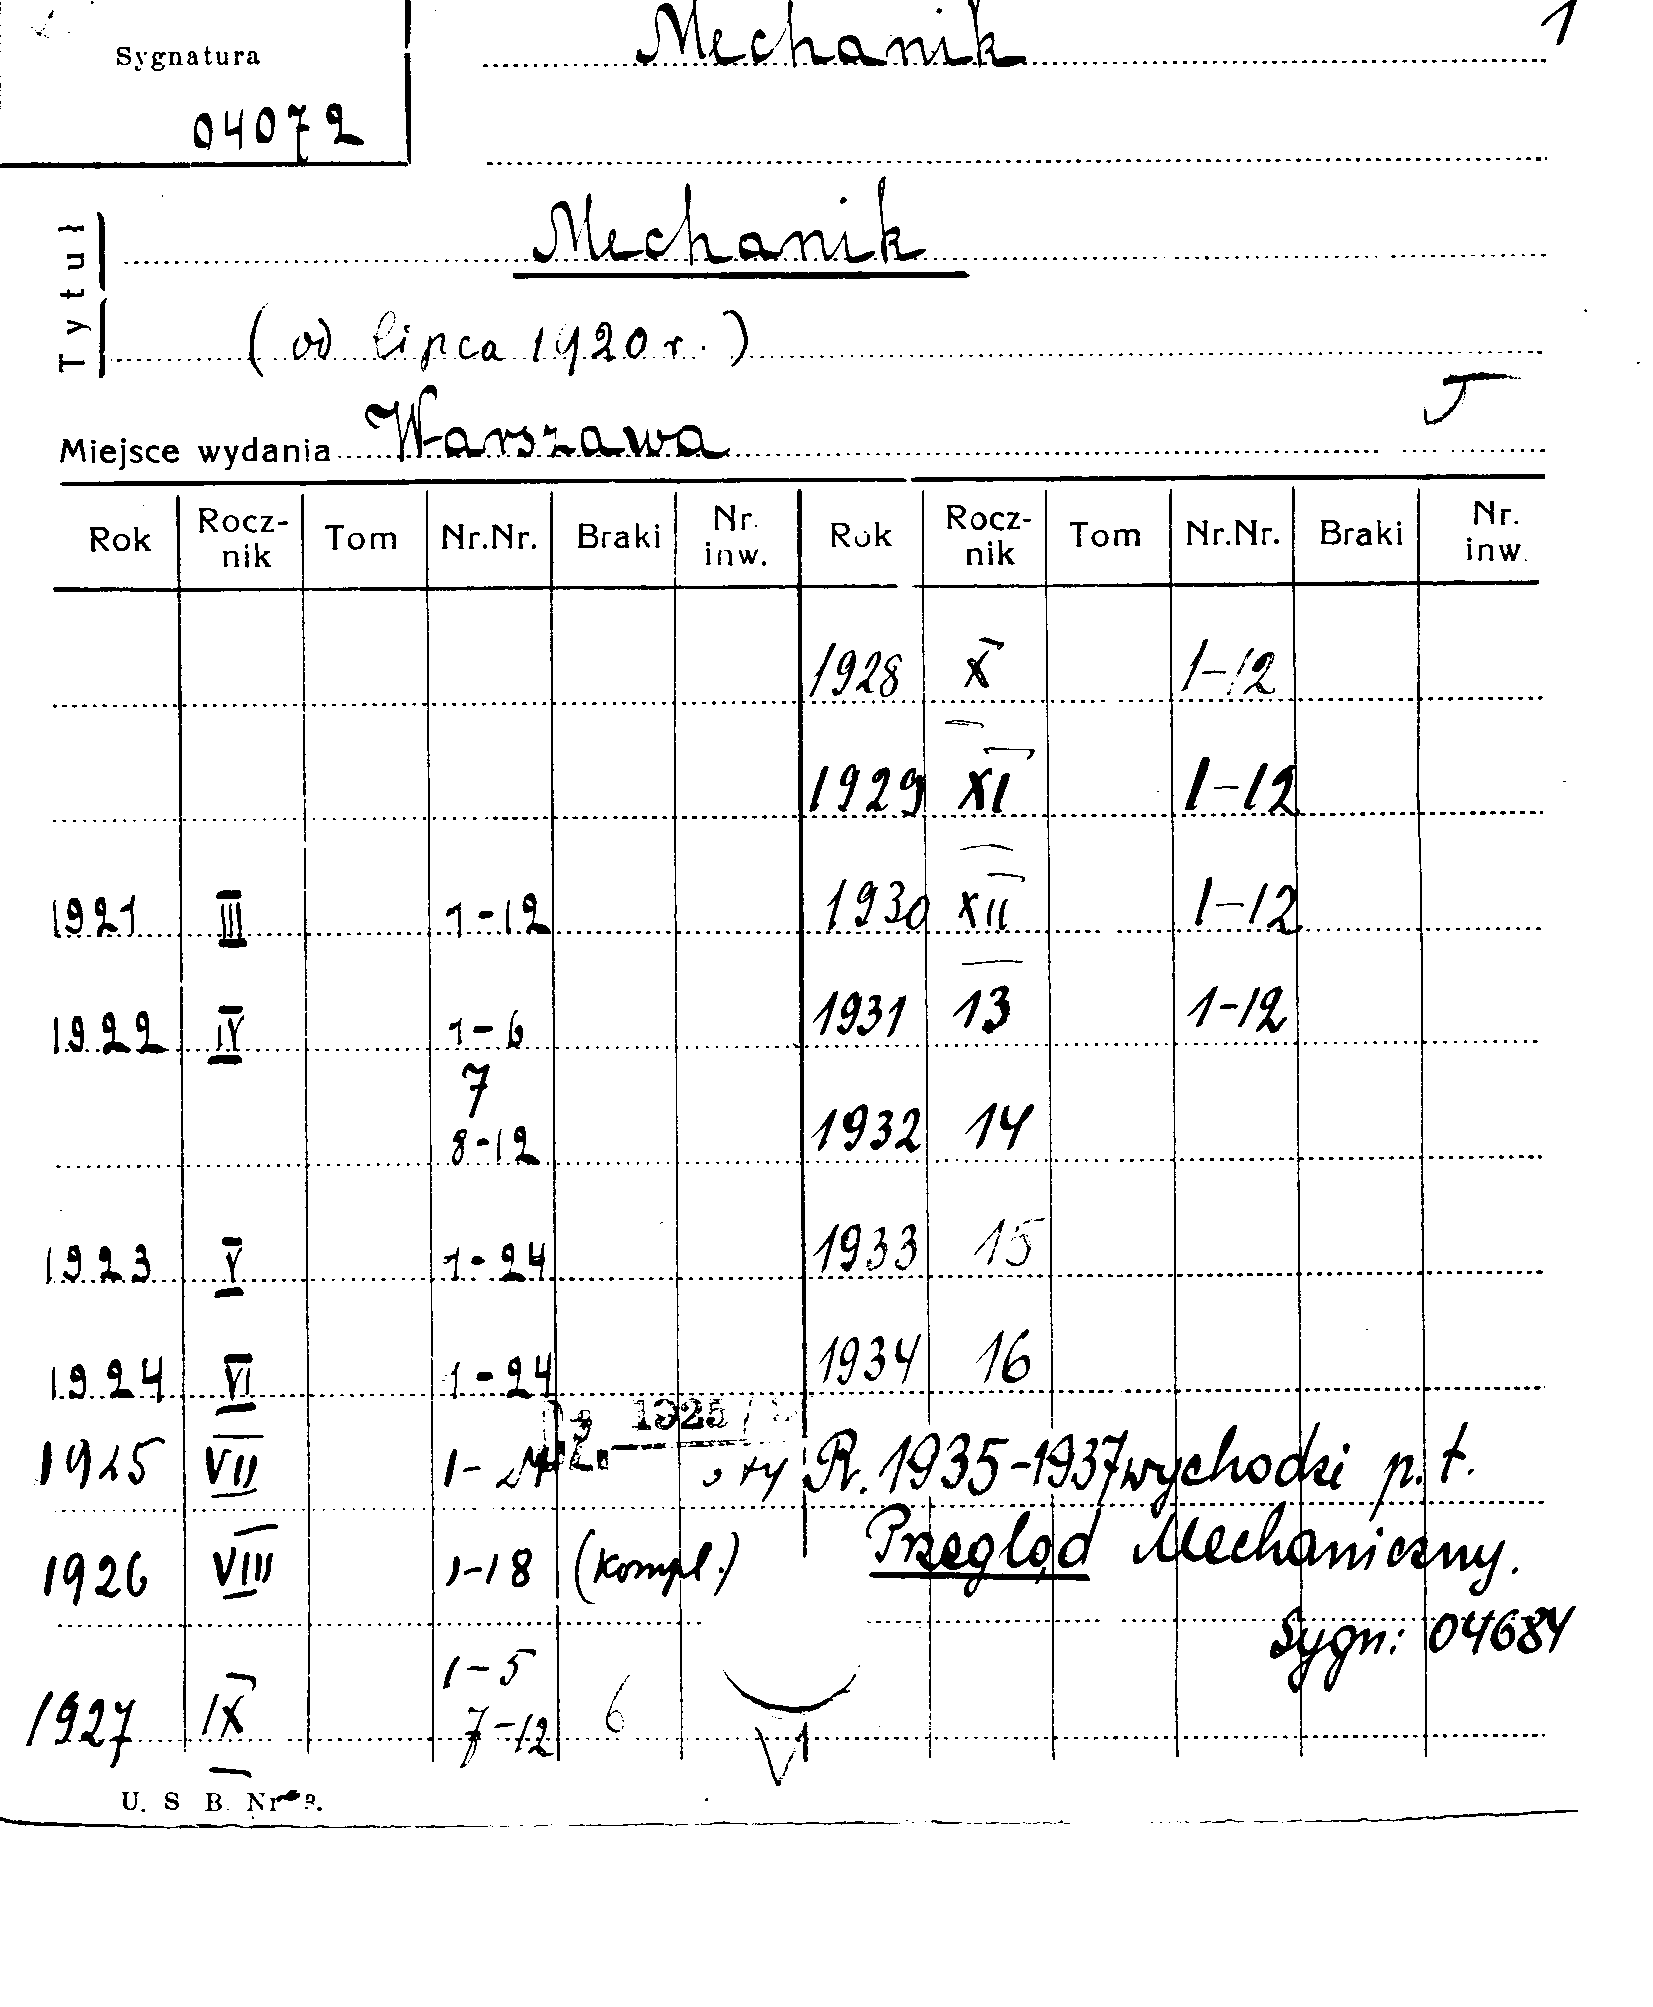 Mechanik 1
Sygnatura
04072
Tytuł
Mechanik
(od lipca 1920 r.)
Miejsce wydania Warszawa
Rok Rocz-nik Tom Nr.Nr. Braki Nr. inw. Rok Rocz-nik Tom Nr.Nr. Braki Nr. inw.
1928 X 1-12
1929 XI 1-12
1921 III 1-12 1930 XII 1-12
1922 IV 1-6 1931 13 1-12
7
8-12 1932 14
1923 V 1-24 1933 15
1924 VI 1-24 1934 16
1925
1925 VII 1-24 R. 1935-1937 wychodzi p. t.
1926 VIII 1-18 (kompl.) Przegląd Mechaniczny.
Sygn: 04684
1-5
1927 IX 7-12 6
VI
U. S. B. Nr